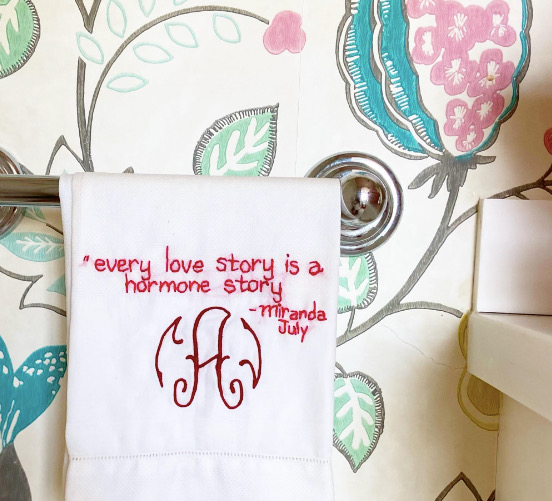 "every love story is a
hormone story
-miranda
July
A